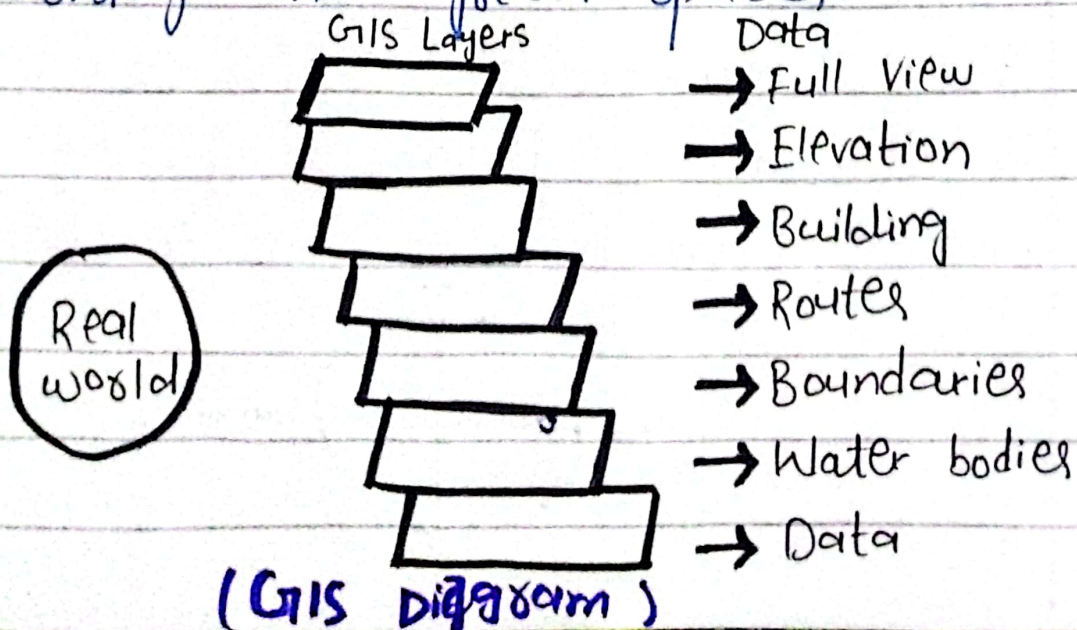 GIS Layers
Data
→ Full View
→ Elevation
→ Building
→ Routes
→ Boundaries
→ Water bodies
→ Data
Real
world
(GIS Diagram)